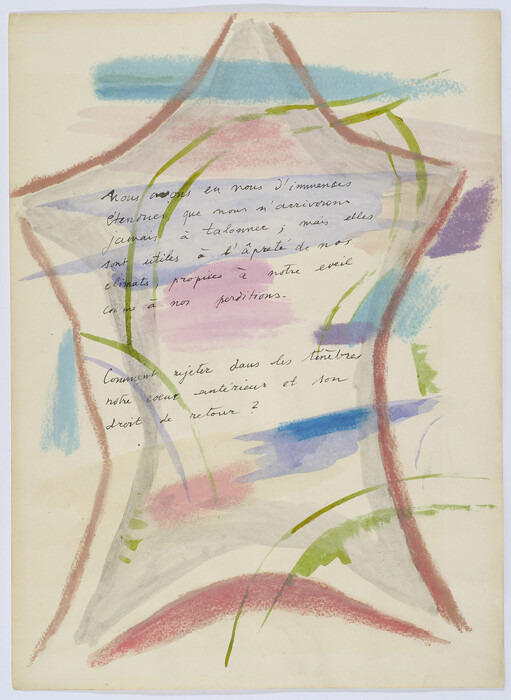 Nous avons en nous d'immenses
étendues que nous n'arriverons
jamais à talonner ; mais elles
sont utiles à l'âpreté de nos
climats, propices à notre éveil
comme à nos perditions.
Comment rejeter dans les ténèbres
notre coeur antérieur et son
droit de retour ?